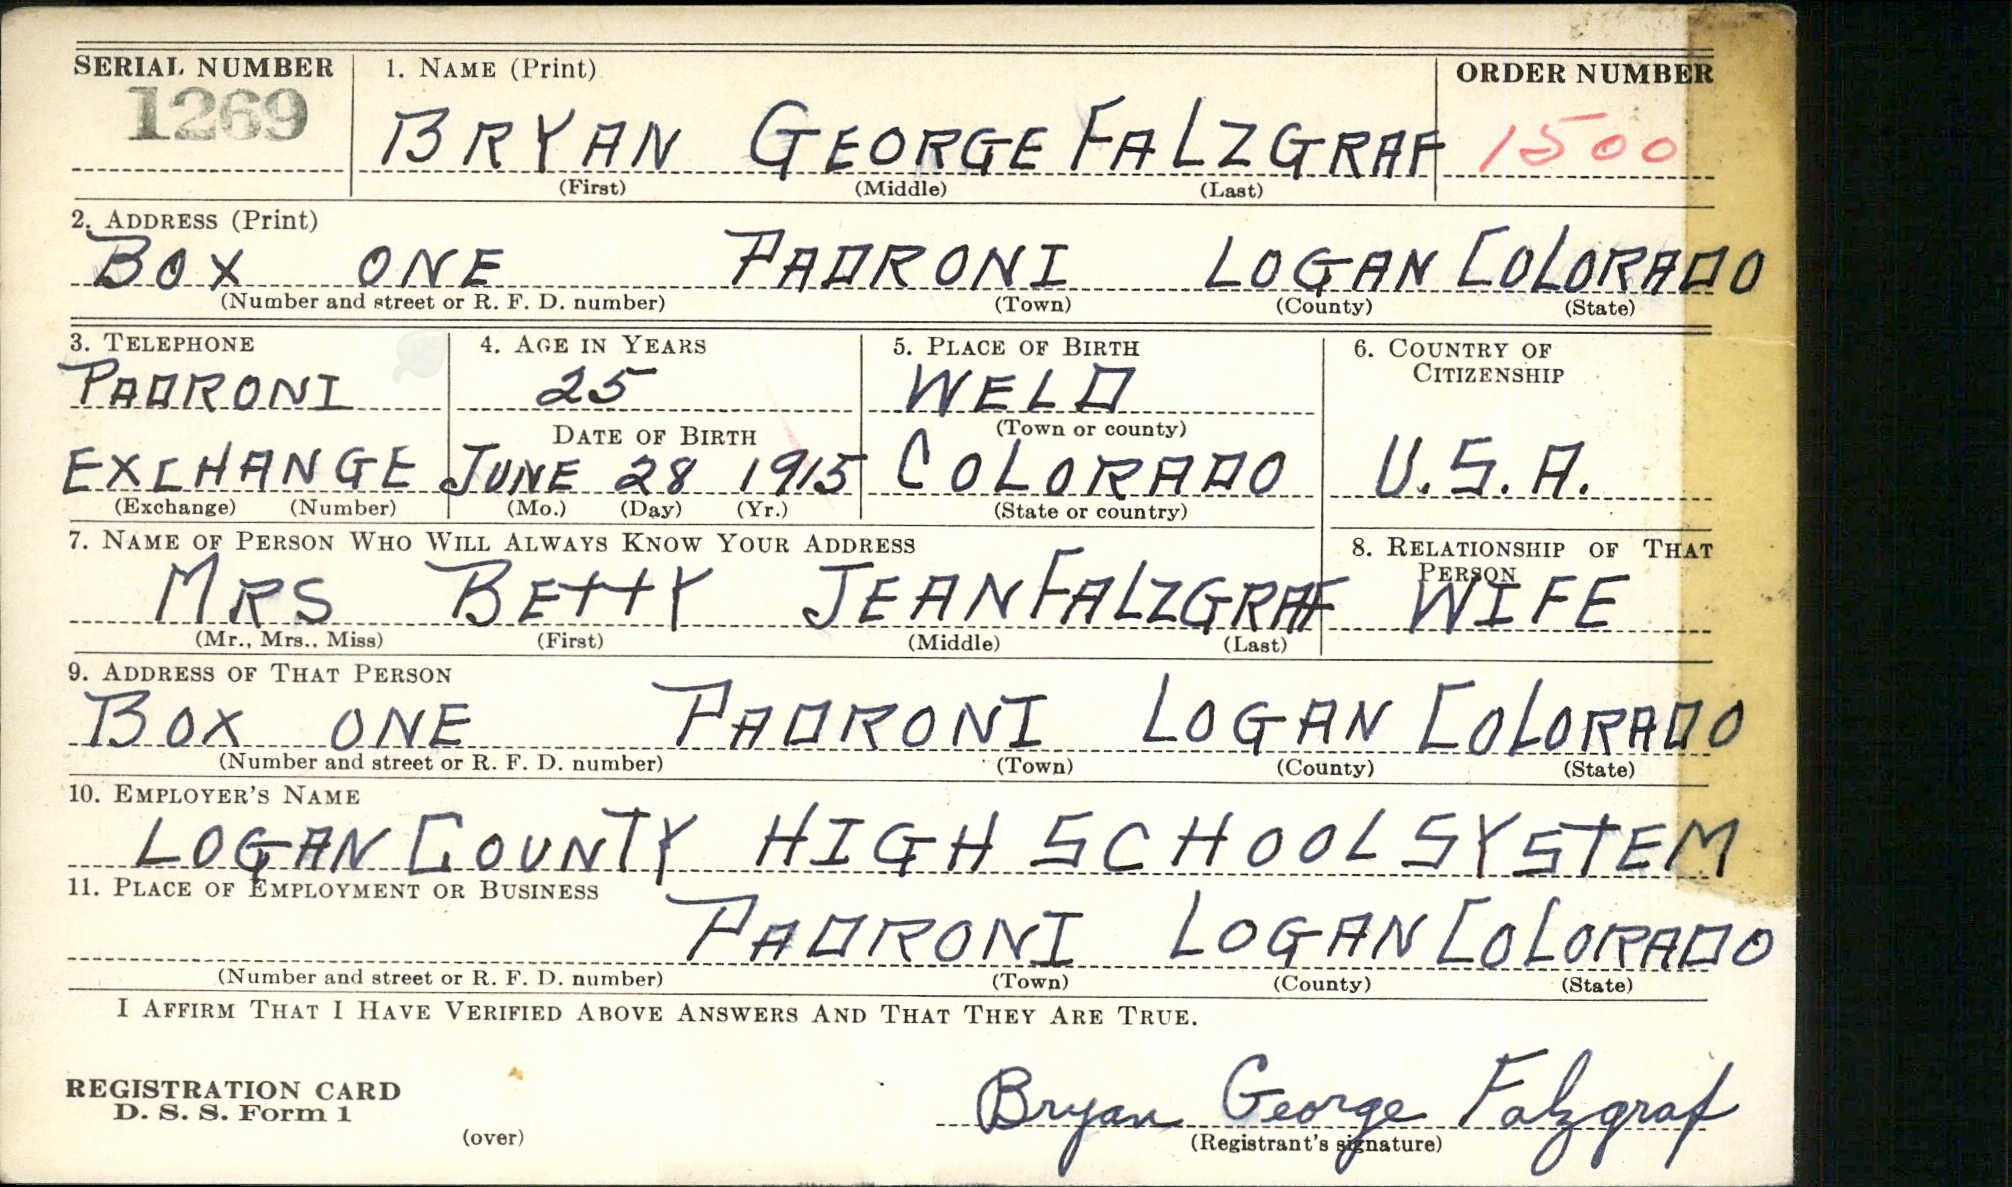 SERIAL NUMBER 1. NAME (Print) ORDER NUMBER
1269 BRYAN GEORGE FALZGRAF 1500
(First) (Middle) (Last)
2. ADDRESS (Print)
BOX ONE PADRONI LOGAN COLORADO
(Number and street or R. F. D. number) (Town) (County) (State)
3. TELEPHONE 4. AGE IN YEARS 5. PLACE OF BIRTH 6. COUNTRY OF
CITIZENSHIP
PADRONI 25 WELD
DATE OF BIRTH (Town or county)
EXCHANGE JUNE 28 1915 COLORADO U.S.A.
(Exchange) (Number) (Mo.) (Day) (Yr.) (State or country)
7. NAME OF PERSON WHO WILL ALWAYS KNOW YOUR ADDRESS 8. RELATIONSHIP OF THAT
PERSON
MRS BETTY JEAN FALZGRAF WIFE
(Mr., Mrs., Miss) (First) (Middle) (Last)
9. ADDRESS OF THAT PERSON
BOX ONE PADRONI LOGAN COLORADO
(Number and street or R. F. D. number) (Town) (County) (State)
10. EMPLOYER'S NAME
LOGAN COUNTY HIGH SCHOOL SYSTEM
11. PLACE OF EMPLOYMENT OR BUSINESS
PADRONI LOGAN COLORADO
(Number and street or R. F. D. number) (Town) (County) (State)
I AFFIRM THAT I HAVE VERIFIED ABOVE ANSWERS AND THAT THEY ARE TRUE.
REGISTRATION CARD
D. S. S. Form 1 Bryan George Falzgraf
(over) (Registrant's signature)